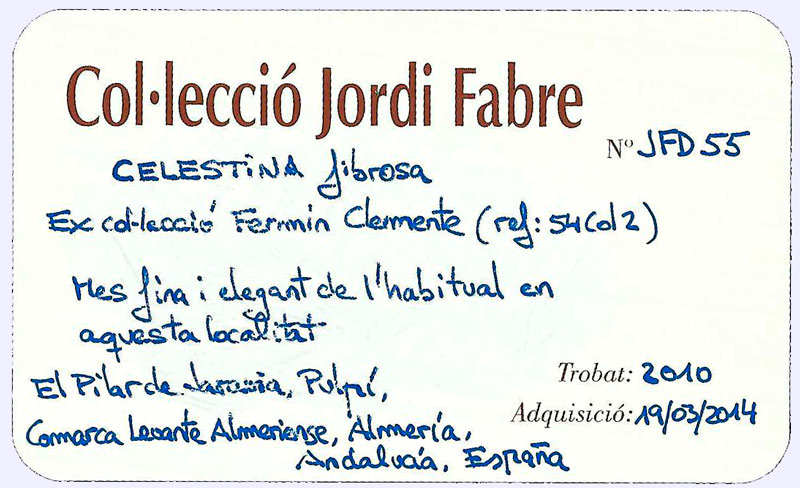 Col·lecció Jordi Fabre
Nº JFD55
CELESTINA fibrosa
Ex col·lecció Fermín Clemente (ref: 54Col2)
Mes fina i elegant de l'habitual en
aquesta localitat
El Pilar de Jaravía, Pulpí,
Trobat: 2010
Comarca Levante Almeriense, Almería,
Adquisició: 19/03/2014
Andalucía, España